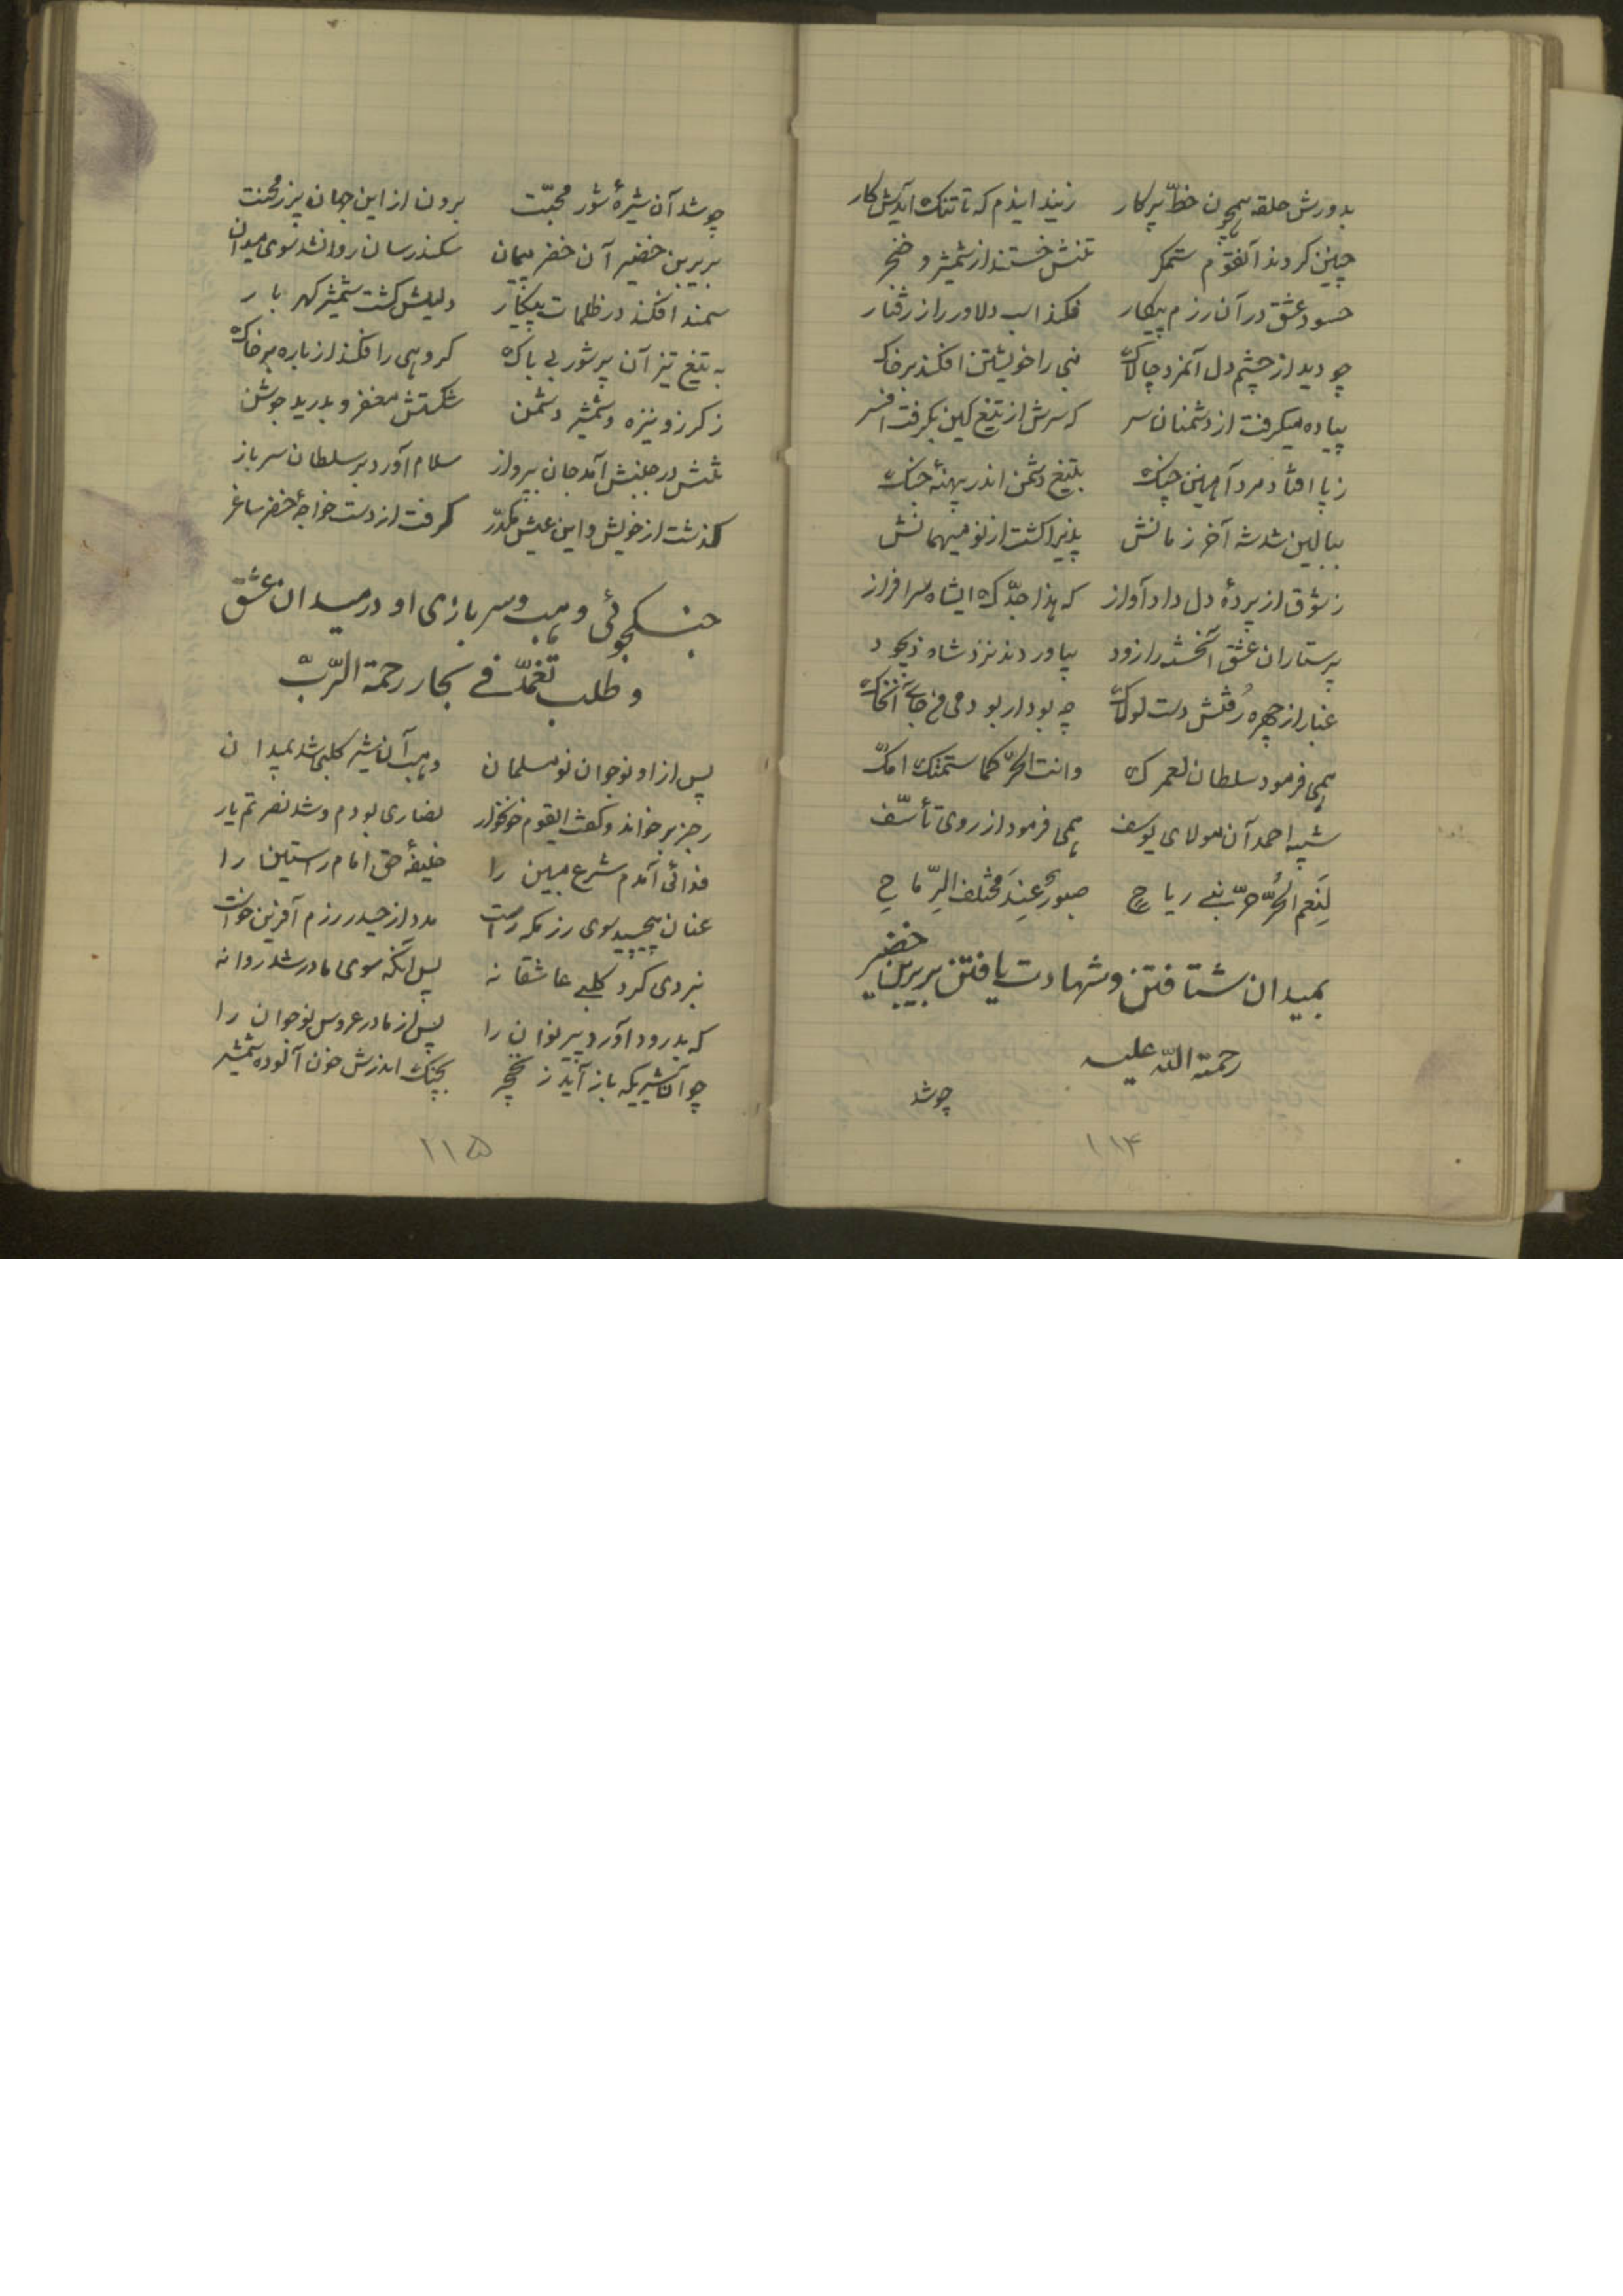 بدورش حلقه همچون خطّ پرکار زنید ایذم که تا تنک آیدش کار
چنین کردند آنقوم ستمکر تنش خستند از شمشیر و خنجر
حسود عشق در آن رزم پیکار فکند اسب دلاور را ز رفتار
چو دید از چشم دل آنمرد چالاک نبی را خویشتن افکند بر خاک
پیاده میکرفت از دشمنان سر که سرش از تیغ کین بکرفت افسر
ز پا افتاد مرد آهنین چنک بتیغ دشمن اندر پهنهٔ جنک
ببالین شد شه آخر زمانش پذیرا کشت از نو میهمانش
ز شوق از پردهٔ دل داد آواز که هذا جدّک ایشاه سرافراز
پرستاران عشق آنخسته را زود بیاوردند نزد شاه ذیجود
غبار از چهره رُفتش دست لولاک چه بود ار بودمی من جای آنخاک
همی فرمود سلطان لعمرک وانت الحرّ کما سمّتک امک
شبیه احمد آن مولای یوسف همی فرمود از روی تأسّف
لَنِعم الحُرّ حرّ بنی ریاح صبورٌ عِندَ مختلف الرّماح
بمیدان شتافتن و شهادت یافتن بریر بن خضیر
رحمة اللّه علیه
چو شد
۱۱۴
چو شد آن شیرهٔ شور محبّت برون از این جهان پر ز محنت
بریر بن خضیر آن خضر پیمان سکندر سان روانشد سوی میدان
سمند افکند در ظلمات پیکار دلیلش کشت شمشیر کهر بار
به تیغ تیز آن پر شور بی باک کروهی را فکند از باره بر خاک
ز کرز و نیزه و شمشیر دشمن شکستش مغفر و بدرید جوشن
تنش در جنبش آمد جان بپرواز سلام آورد بر سلطان سرباز
کذشت از خویش و این عیش مکدّر کرفت از دست خواجهٔ خضر ساغر
جنکجوئی وهب و سربازی او در میدان عشق
و طلب تغمّد فی بحار رحمة الرّبّ
پس از او نوجوان نو مسلمان وهب آن شیر کلبی شد بمیدان
رجز بر خواند و کفت ایقوم خونخوار نصاری بودم و شد نصرتم یار
فدائی آمدم شرع مبین را خلیفهٔ حق امام راستین را
عنان پیچید سوی رزمکه راست مدد از حیدر رزم آفرین خواست
نبردی کرد کلبی عاشقانه پس آنکه سوی مادر شد روانه
که بدرود آورد پیر نوان را پس از مادر عروس نوجوان را
چو آن شیریکه باز آید ز نخچیر بچنک اندرش خون آلوده شمشیر
۱۱۵